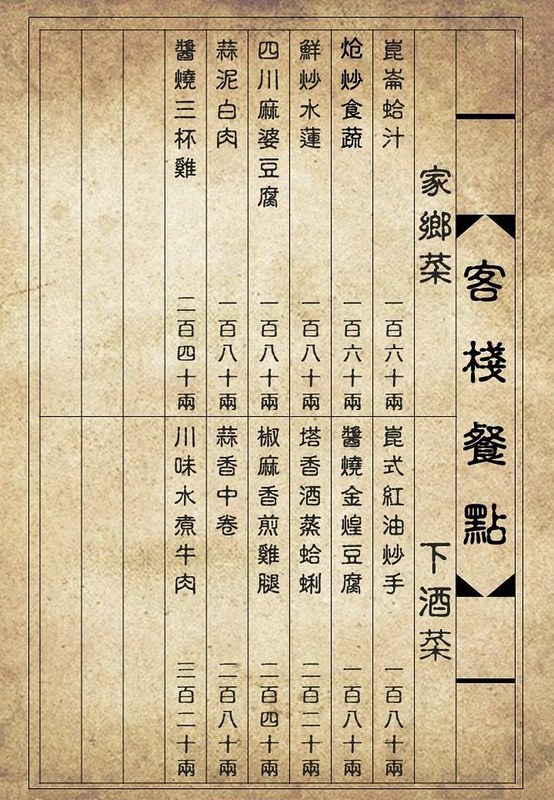 客棧餐點
家鄉菜
崑崙蛤汁 一百六十兩
炝炒食蔬 一百六十兩
鮮炒水蓮 一百八十兩
四川麻婆豆腐 一百八十兩
蒜泥白肉 一百八十兩
醬燒三杯雞 二百四十兩
下酒菜
崑式紅油炒手 一百八十兩
醬燒金煌豆腐 一百八十兩
塔香酒蒸蛤蜊 二百二十兩
椒麻香煎雞腿 二百四十兩
蒜香中卷 二百八十兩
川味水煮牛肉 三百二十兩